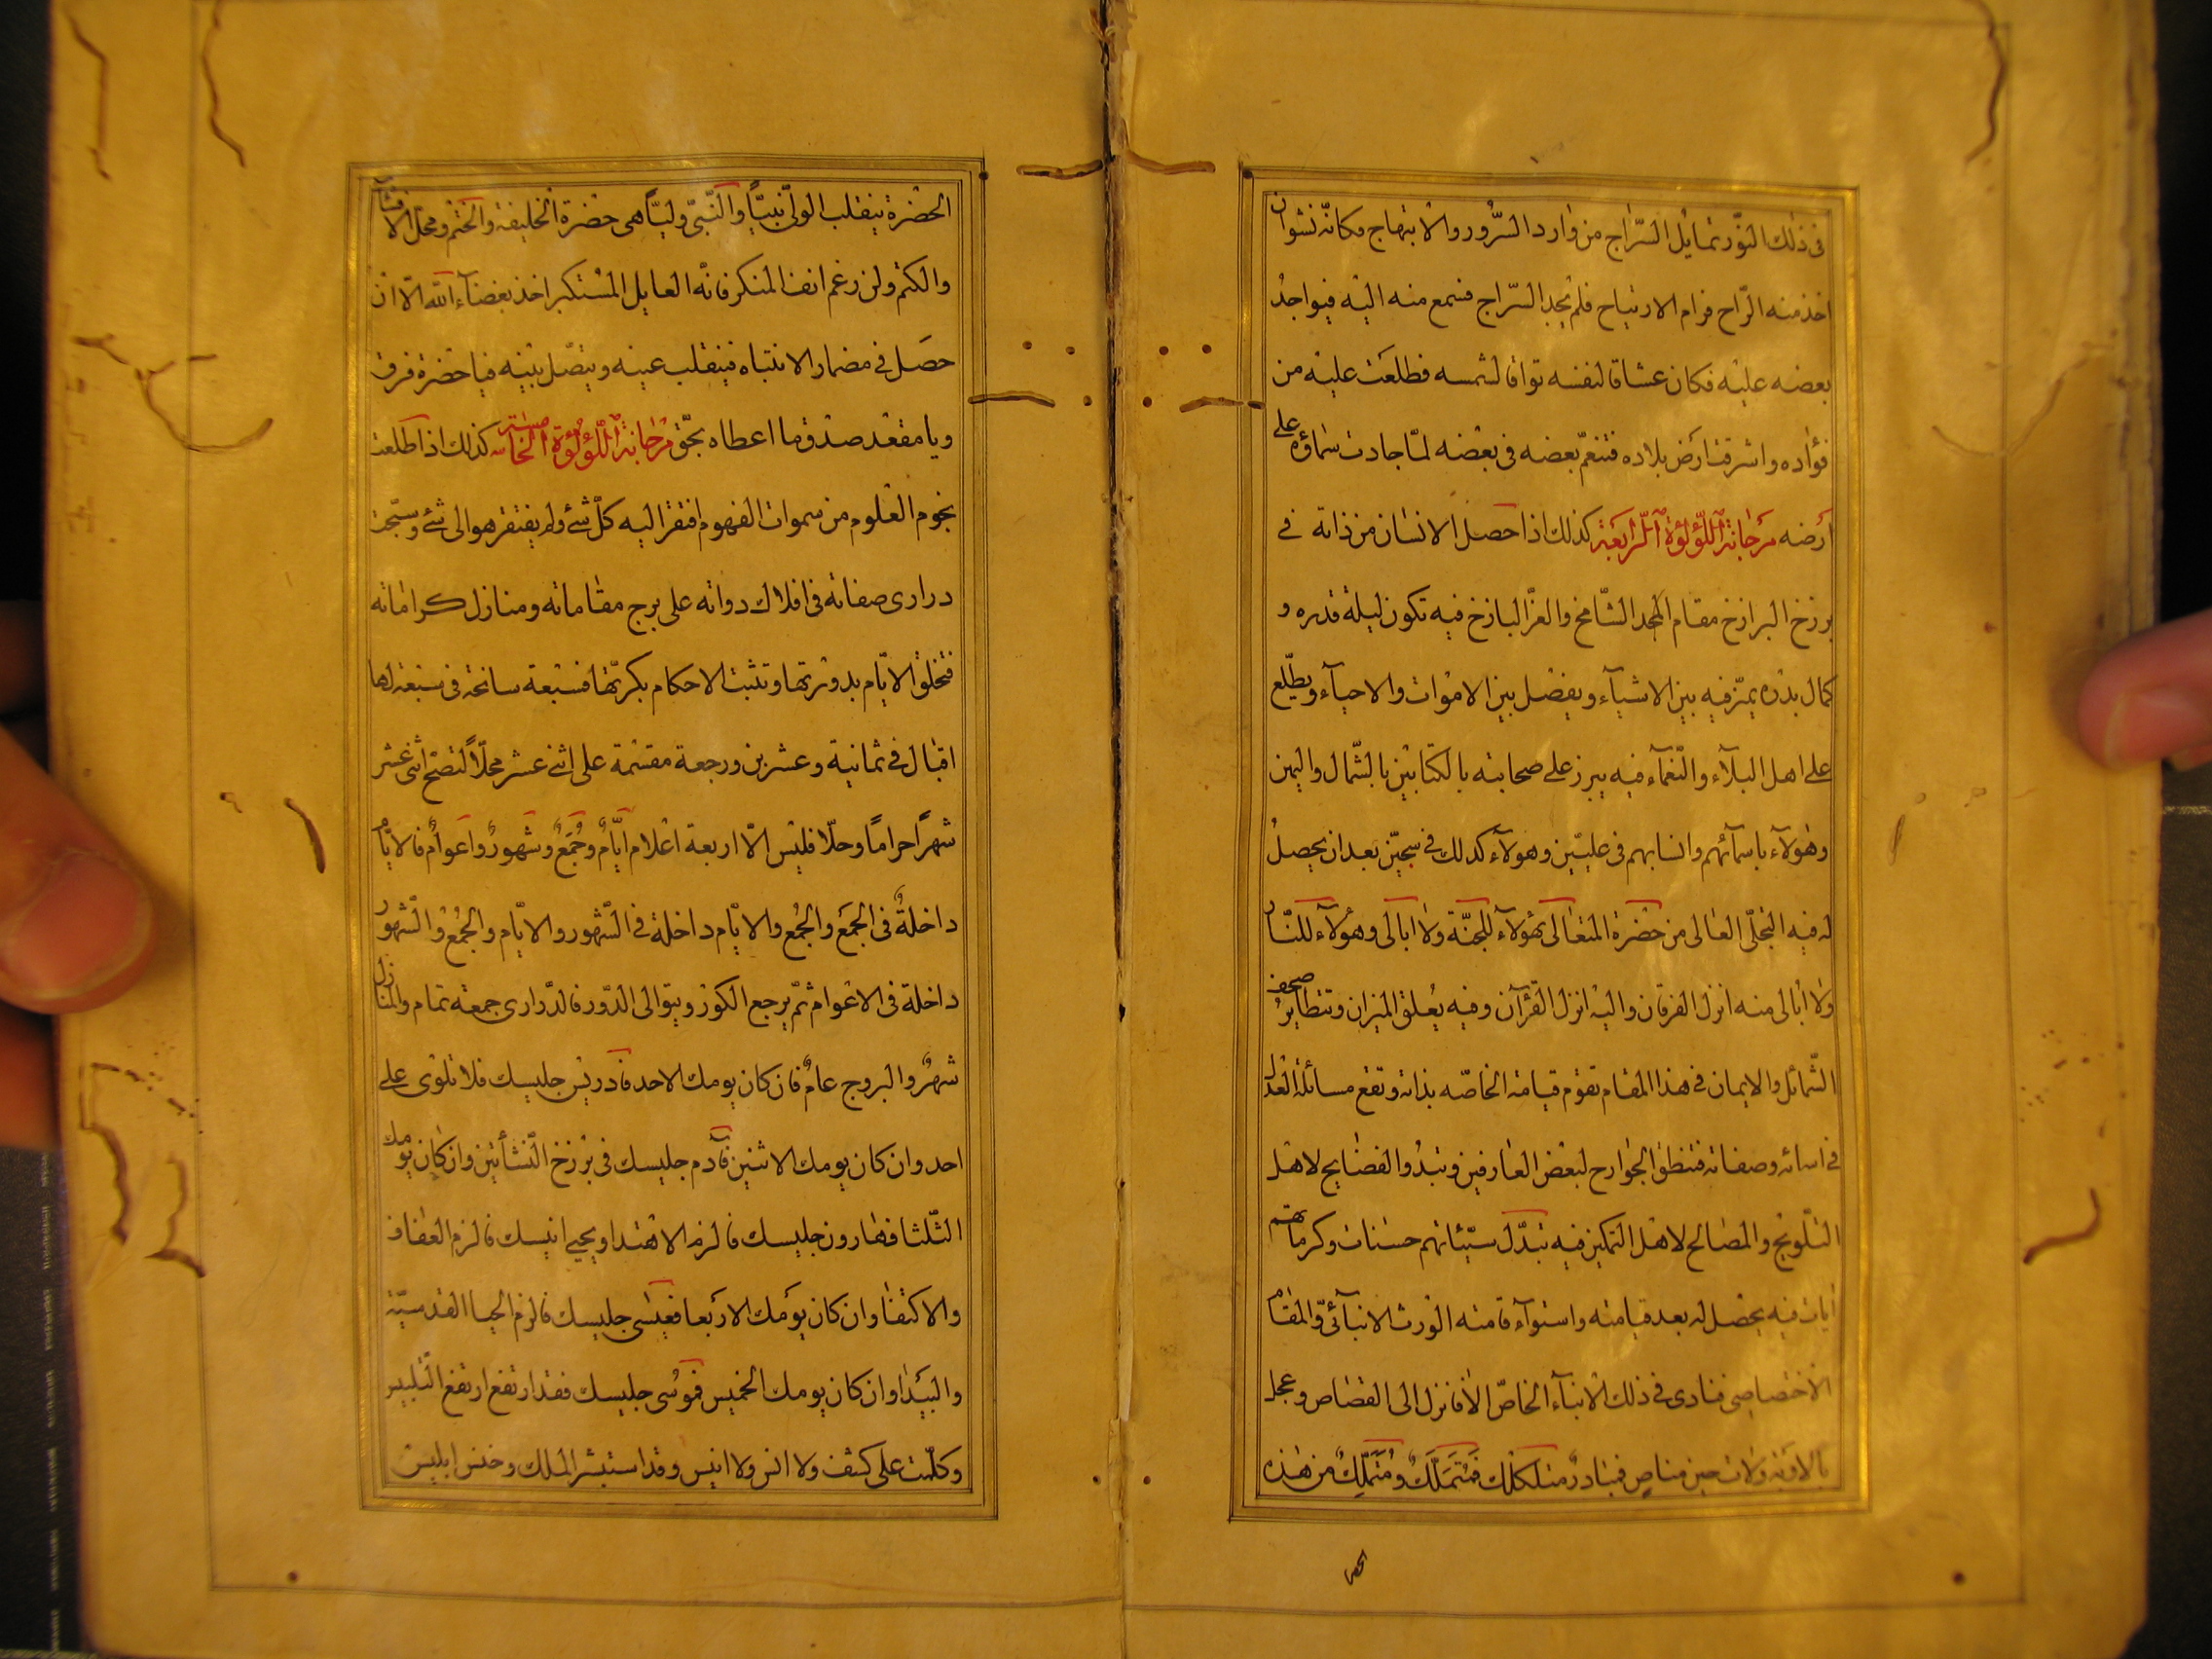 فى ذلك النور تمايل السراج من وارد السرور والابتهاج فكانه نشوان
اخذ منه الراح فرام الارتياح فلم يجد السراج فسمع منه اليه فيواجد
بعضه عليه فكان عشاقا لنفسه تواقا لشمسه فطلعت عليه من
فؤاده واشرقت ارض بلاده فتنعم بعضه فى بعضه لما جادت سماؤه على
ارضه مرجانة اللؤلؤة الرابعة كذلك اذا حصل الانسان من ذاته فى
برزخ البرازخ مقام المجد الشامخ والعز الباذخ فيه تكون ليلة قدره و
كمال بدره يميز فيه بين الاشياء ويفصل بين الاموات والاحياء ويطلع
على اهل البلاء والنعماء فيه يبرز على صحابته بالكتابين بالشمال واليمين
وهولاء باسمائهم وانسابهم فى عليين وهولاء كذلك فى سجين بعد ان يحصل
له فيه التجلى العالى من حضرة المتعالى بهولاء للجنة ولا ابالى وهولاء للنار
ولا ابالى منه انزل الفرقان واليه انزل القرآن وفيه يعلق الميزان وتتطاير صحف
الشمائل والايمان فى هذا المقام تقوم قيامته الخاصه بذاته وتقع مسائلة العدل
فى اسمائه وصفاته فتنطق الجوارح لبعض العارفين وتبدو الفضايح لاهل
التلويح والمصالح لاهل التمكين فيه تبدل سيئاتهم حسنات وكرماتهم
ايات فيه يحصل له بعد قيامته واستواء قامته الورث الانبآئى والمقام
الاختصاصى فنادى فى ذلك الانبآء الخاص الا فانزل الى القصاص وعجل
بالاوبة ولات حين مناص فبادر منا لكلك فتملك ومتملك من هذه
الحضـ
الحضرة ينقلب الولى نبيا والنبى وليا هى حضرة الخليفة والختم ومحل الافشآ
والكتم ولن رغم انف المنكر فانه العايل المستكبر اخذ بغضآء الله الا ان
حصل فى مضمار الانتباه فينقلب عينه ويتصل بينه فيا حضرة فرق
ويا مقعد صدق ما اعطاه بحق مرجانة اللؤلؤة الخامسة كذلك اذا طلعت
نجوم العلوم من سموات الفهوم افتقر اليه كل شئ ولم يفتقر هو الى شئ وسبحت
درارى صفاته فى افلاك دواته على برج مقاماته ومنازل كراماته
فتخلق الايام بدورتها وتثبت الاحكام بكرتها فسبعة سابحة فى سبعة لها
اقبال فى ثمانية وعشرين ورجعة مقسمة على اثنى عشر محلا لتصح اثنى عشر
شهرا حراما وحلا فليس الا اربعة اعلام ايام وجمع وشهور واعوام فالايام
داخلة فى الجمع والجمع والايام داخلة فى الشهور والايام والجمع والشهور
داخلة فى الاعوام ثم يرجع الكور ويتوالى الدور فالدرارى جمعة تمام والمنازل
شهر والبروج عام فان كان يومك الاحد فادريس جليسك فلا تلوى على
احد وان كان يومك الاثنين فآدم جليسك فى برزخ النشأتين وان كان يومك
الثلثا فهارون جليسك فالزم الاهتدا ويحيى انيسك فالزم العفاف
والاكتفا وان كان يومك الاربعا فعيسى جليسك فالزم الحيا القدسية
والبيدا وان كان يومك الخميس فموسى جليسك فقد ارتفع التلبيس
وكلمت على كشف ولا انس ولا انيس وقد استبشر الملك وخنس ابليس